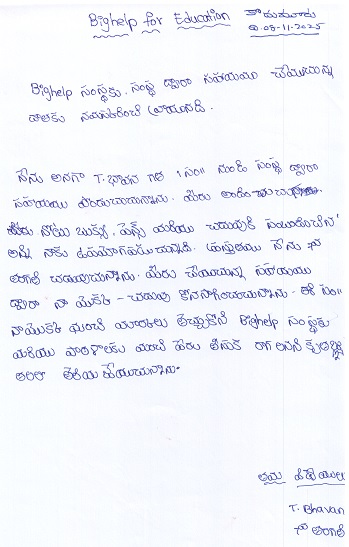 Bighelp for Education కొడుమూరు
ది.08-11-2025
Bighelp సంస్థకు, సంస్థ ద్వారా సహాయం చేయుచున్న
వాళకు నమస్కరించి వ్రాయునది.
నేను అనగా T. భావన గత 1 సం॥ నుండి సంస్థ ద్వారా
సహాయం పొందుచున్నాను. మీరు అందించు
నోటు బుక్కు, పెన్స్ మరియు చదువుకి సంబంధించిన
అన్ని నాకు ఉపయోగపడుచున్నవి. ప్రస్తుతము నేను 7వ
తరగతి చదువుచున్నాను. మీరు చేయుచున్న సహాయం
ద్వారా నా యొక్క చదువు కొనసాగించుచున్నాను. ఈ సం॥
నాయొక్క మంచి మార్కులు తెచ్చుకొని Bighelp సంస్థకు
మరియు పాఠశాలకు మంచి పేరు తీసుకు రాగలనని కృతజ్ఞ
తెలియజేయుచున్నాను.
తమ విధేయులు
T. Bhavan
7వ తరగతి